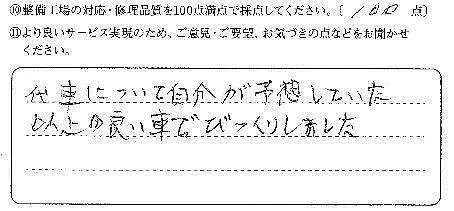 ⑩整備工場の対応・修理品質を100点満点で採点してください。〔 100 点〕
⑪より良いサービス実現のため、ご意見・ご要望、お気づきの点などをお聞かせ
ください。
代車について自分が予想していた
以上の良い車でびっくりしました